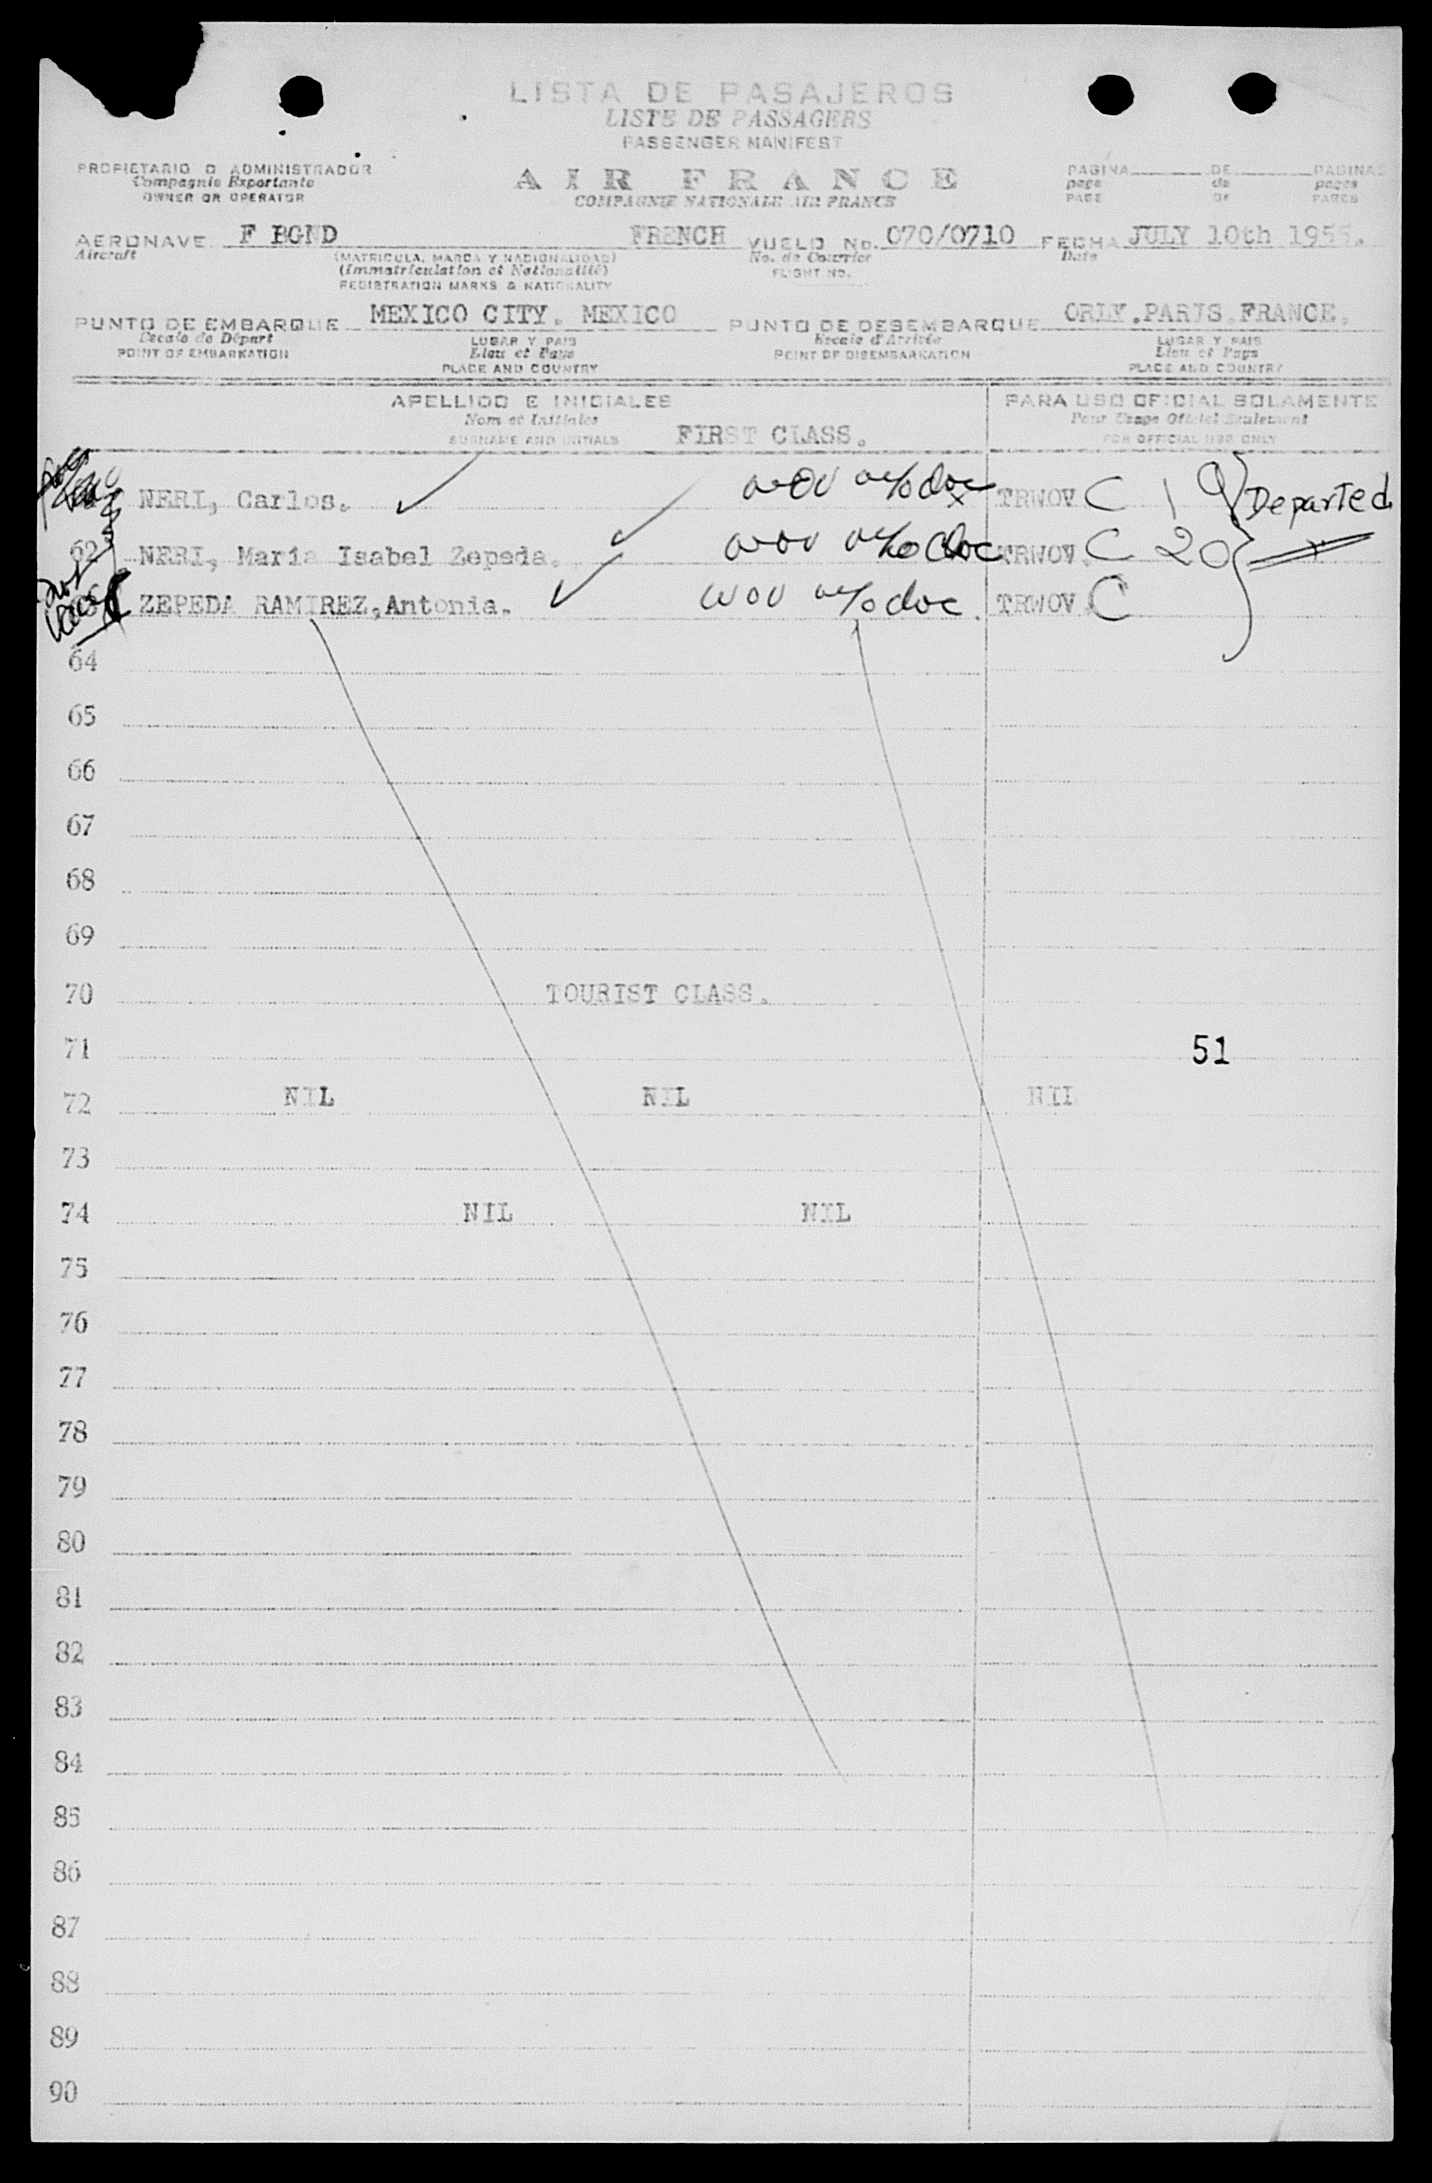 LISTA DE PASAJEROS
LISTE DE PASSAGERS
PASSENGER MANIFEST
PROPIETARIO O ADMINISTRADOR
Compagnie Exportante
OWNER OR OPERATOR
AIR FRANCE
COMPAGNIE NATIONALE AIR FRANCE
PAGINA DE PAGINAS
page de pages
PAGE OF PAGES
AERONAVE F BGND FRENCH VUELO No. 070/0710 FECHA JULY 10th 1955.
Aircraft (MATRICULA, MARCA Y NACIONALIDAD) No. de Courrier Date
(Immatriculation et Nationalité) FLIGHT NO.
REGISTRATION MARKS & NATIONALITY
PUNTO DE EMBARQUE MEXICO CITY. MEXICO PUNTO DE DESEMBARQUE ORLY.PARIS.FRANCE.
Escale de Départ LUGAR Y PAIS Escale d'Arrivée LUGAR Y PAIS
POINT OF EMBARKATION Lieu et Pays POINT OF DISEMBARKATION Lieu et Pays
PLACE AND COUNTRY PLACE AND COUNTRY
APELLIDO E INICIALES PARA USO OFICIAL SOLAMENTE
Nom et Initiales Pour Usage Officiel Seulement
SURNAME AND INITIALS FIRST CLASS. FOR OFFICIAL USE ONLY
NERI, Carlos. wov w/o doc TRWOV C 1 Departed
62 NERI, Maria Isabel Zepeda. wov w/o doc TRWOV. C 20
ZEPEDA RAMIREZ,Antonia. wov w/o doc TRWOV C
64
65
66
67
68
69
70 TOURIST CLASS.
71 51
72 NIL NIL NIL
73
74 NIL NIL
75
76
77
78
79
80
81
82
83
84
85
86
87
88
89
90